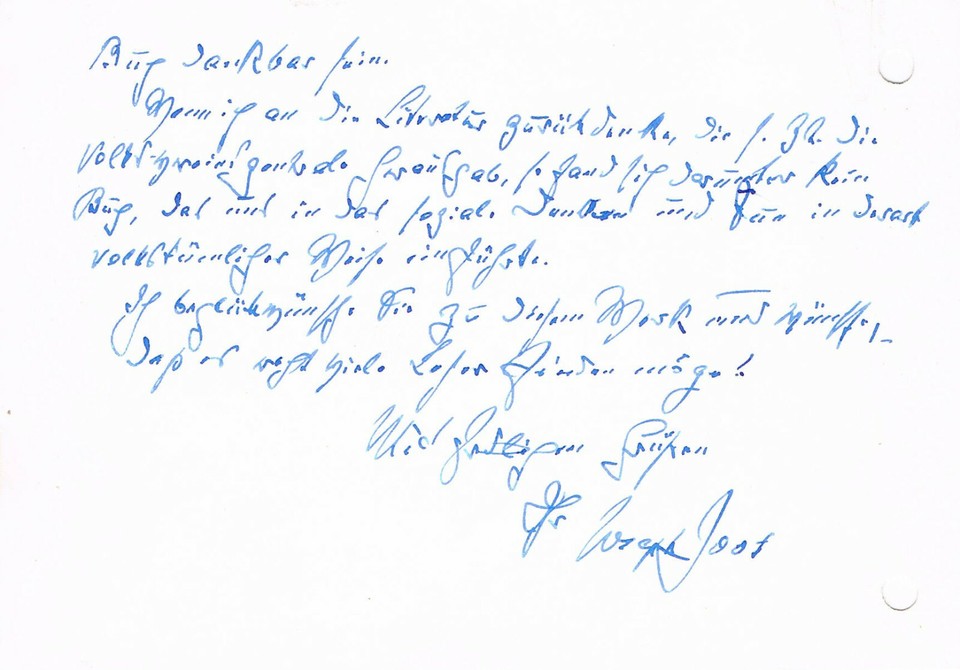 Buch dankbar sein.
Wenn ich an die Literatur zurückdenke, die s. Zt. die
Volksvereinszentrale herausgab, so fand sich darunter kein
Buch, das uns in das soziale Denken und Tun in derart
volkstümlicher Weise einführte.
Ich beglückwünsche Sie zu diesem Werk und wünsche,
daß es recht viele Leser finden möge!
Mit herzlichen Grüßen
Ihr Joseph Joos